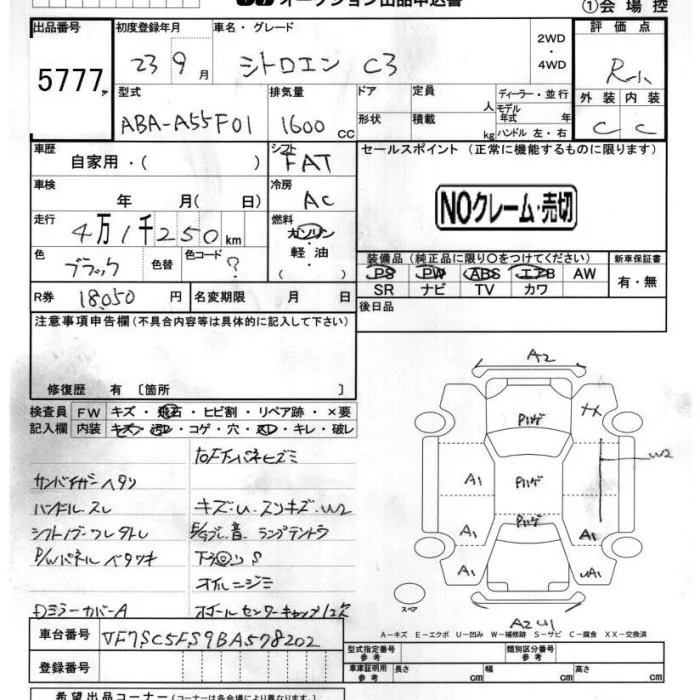 オークション出品申込書
①会場控
出品番号 初度登録年月 車名・グレード 評価点
5777 23 9月 シトロエン C3 2WD・4WD R
型式 排気量 ドア 定員 人 ディーラー・並行 外装 内装
ABA-A55F01 1600 cc 形状 積載 kg モデル年式 年 ハンドル 左・右 C C
車歴 シフト セールスポイント (正常に機能するものに限ります)
自家用・( ) FAT
車検 冷房
年 月( 日) AC NOクレーム・売切
走行 燃料
4万1千250km ガソリン・軽油( )
色 色替 色コード 装備品 (純正品に限り○をつけてください) 新車保証書
ブラック ? PS PW ABS エアB AW 有・無
R券 18,050 円 名変期限 月 日 SR ナビ TV カワ
注意事項申告欄(不具合内容等は具体的に記入して下さい) 後日品
修復歴 有 〔箇所 〕
検査員 FW キズ・飛石・ヒビ割・リペア跡・×要
記入欄 内装 キズ・汚レ・コゲ・穴・スレ・キレ・破レ
サンバイザーヘタリ
ハンドルスレ キズ・U・スリキズ・W2
シフトノブ・ワレ
P/Wパネルベタツキ
オイルニジミ
DミラーカバーA ホイールセンターキャップ1欠
A2
A1 A1 A1 A1 A1
W2
スペア
A2 U1
A-キズ E-エクボ U-凹み W-補修跡 S-サビ C-腐食 XX-交換済
車台番号 VF7SC5FS9BA578202 型式指定番号 参考 類別区分番号 参考
登録番号 車検証明用 参考 長さ cm 幅 cm 高さ cm
希望出品コーナー(コーナーは各会場により異なります。)